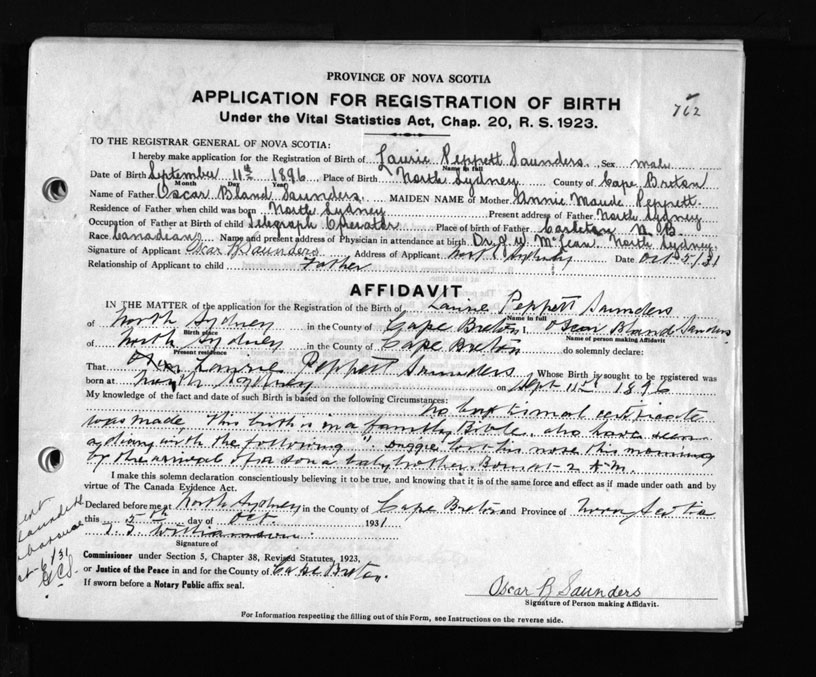 PROVINCE OF NOVA SCOTIA
APPLICATION FOR REGISTRATION OF BIRTH
762
Under the Vital Statistics Act, Chap. 20, R. S. 1923.
TO THE REGISTRAR GENERAL OF NOVA SCOTIA:
I hereby make application for the Registration of Birth of Laurie Peppett Saunders Sex male
Name in full
Date of Birth September 11th 1896 Place of Birth North Sydney County of Cape Breton
Month Day Year
Name of Father Oscar Bland Saunders MAIDEN NAME of Mother Annie Maude Peppett
Residence of Father when child was born North Sydney Present address of Father North Sydney
Occupation of Father at Birth of child Telegraph Operator Place of birth of Father Carleton N. B.
Race Canadian Name and present address of Physician in attendance at birth Dr. McLean North Sydney
Signature of Applicant Oscar B Saunders Address of Applicant North Sydney Date Oct 5/31
Relationship of Applicant to child Father
AFFIDAVIT
IN THE MATTER of the application for the Registration of the Birth of Laurie Peppett Saunders
Name in full
of North Sydney in the County of Cape Breton I, Oscar Bland Saunders
Birth place Name of person making Affidavit
of North Sydney in the County of Cape Breton do solemnly declare:
Present residence
That Laurie Peppett Saunders Whose Birth is sought to be registered was
born at North Sydney on Sept 11th 1896
My knowledge of the fact and date of such Birth is based on the following Circumstances: no baptismal certificate
was made, This birth is in a family Bible, also have seen
a diary with the following " nose this morning
by the arrival of a son a baby brother. Born at 2 A.M.
I make this solemn declaration conscientiously believing it to be true, and knowing that it is of the same force and effect as if made under oath and by
virtue of The Canada Evidence Act.
Declared before me at North Sydney in the County of Cape Breton and Province of Nova Scotia
this 5th day of Oct. 1931
Williamson
Signature of
Commissioner under Section 5, Chapter 38, Revised Statutes, 1923,
or Justice of the Peace in and for the County of Cape Breton.
If sworn before a Notary Public affix seal.
Oscar B Saunders
Signature of Person making Affidavit.
For Information respecting the filling out of this Form, see Instructions on the reverse side.